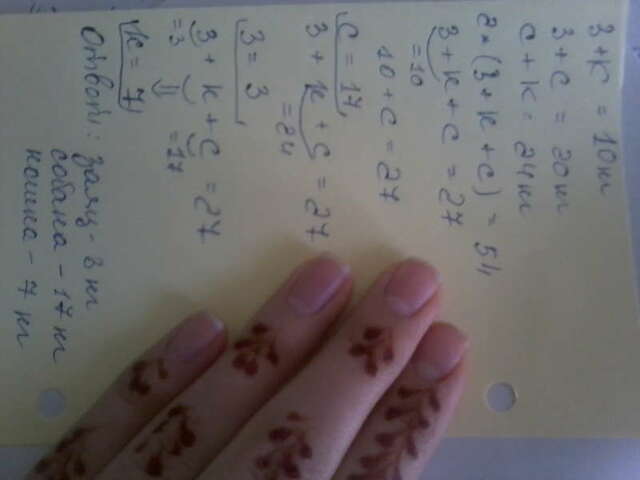 З + К = 10 кг
З + С = 20 кг
С + К = 24 кг
2 * (З + К + С) = 54
З + К + С = 27
= 10
10 + С = 27
С = 17
З + К + С = 27
= 24
З = 3
З + К + С = 27
= 3 = 17
К = 7
Ответ: заяц - 3 кг
собака - 17 кг
кошка - 7 кг